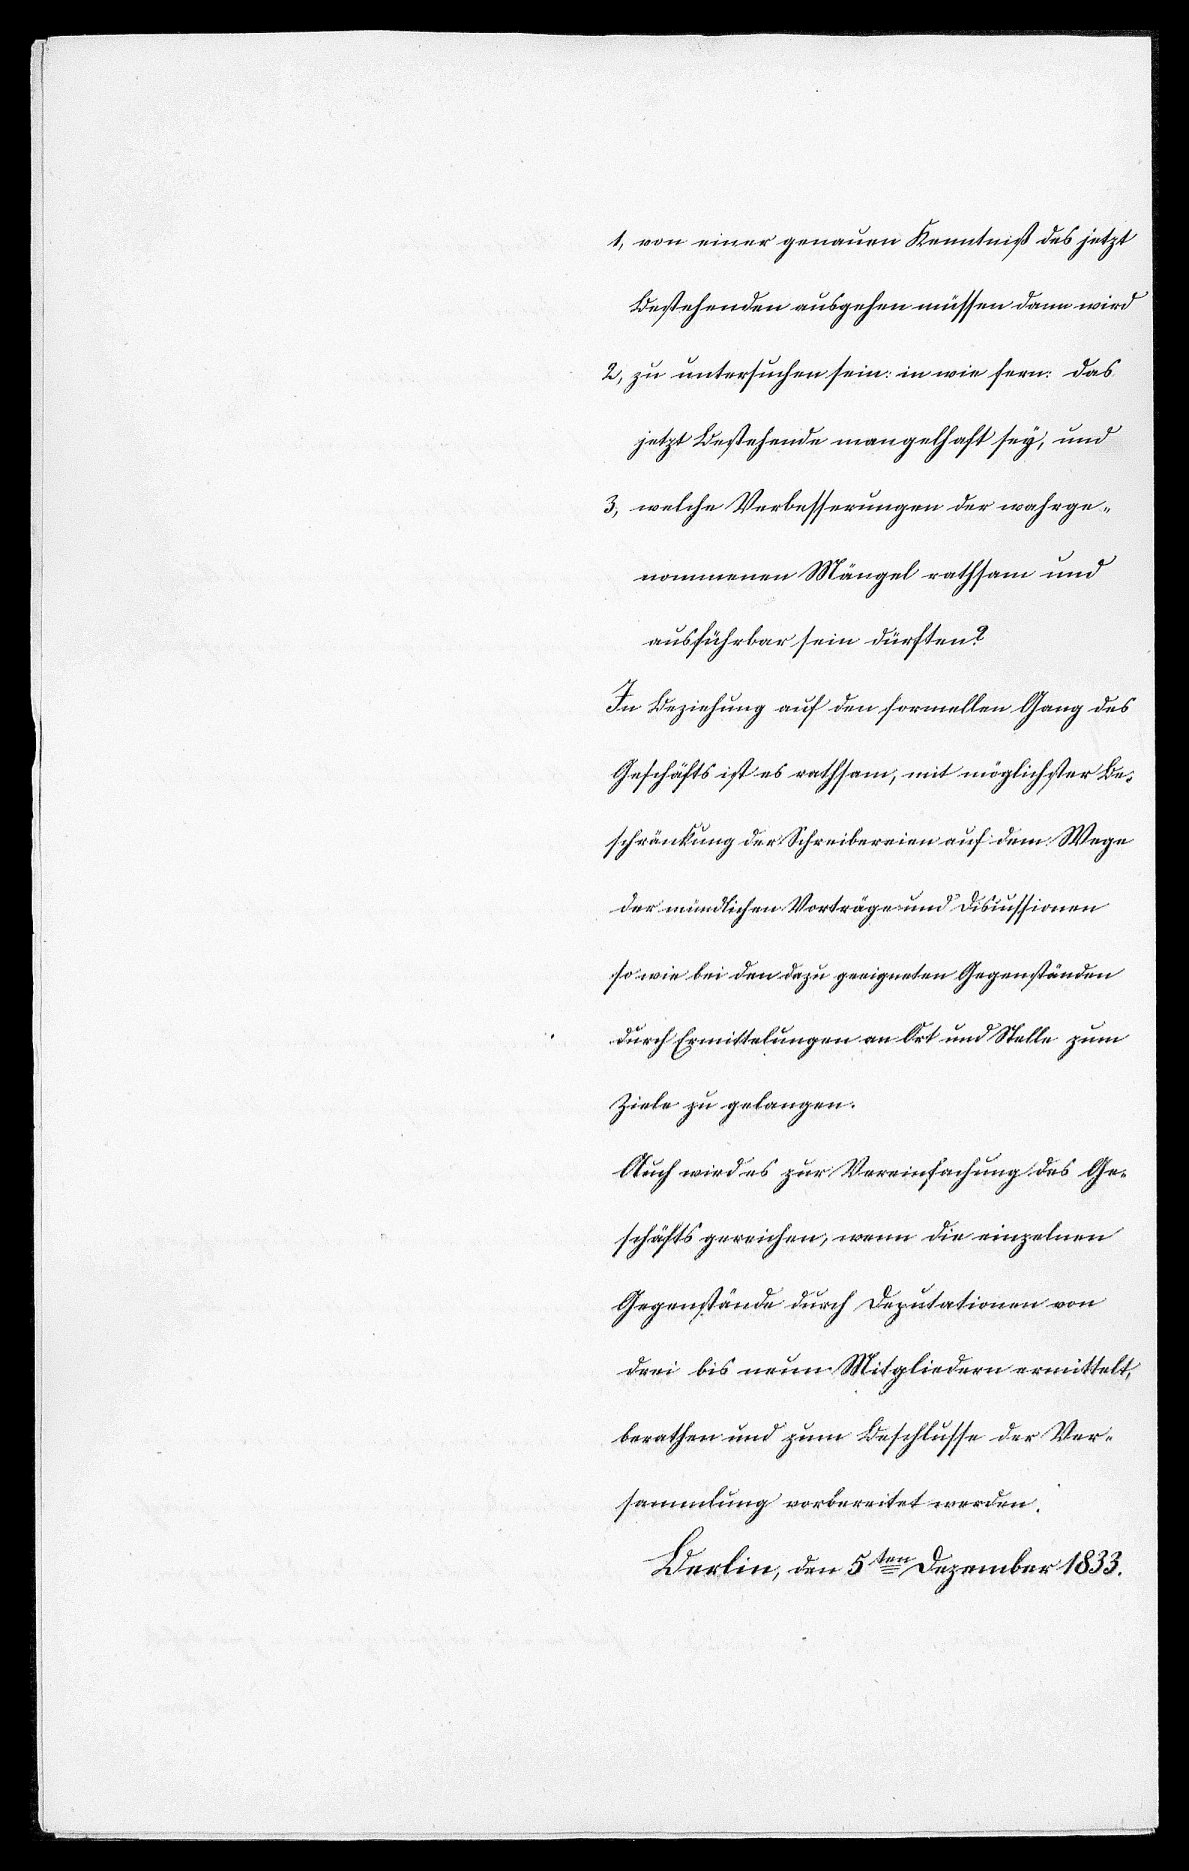 1, von einer genauen Kenntniß des jetzt
Bestehenden ausgehen müssen dann wird
2, zu untersuchen sein: in wie fern: das
jetzt Bestehende mangelhaft sey, und
3, welche Verbesserungen der wahrge-
nommenen Mängel rathsam und
ausführbar sein dürften?
In Beziehung auf den formellen Gang des
Geschäfts ist es rathsam, mit möglichster Be-
schränkung der Schreibereien auf dem Wege
der mündlichen Vorträge und Discussionen
so wie bei den dazu geeigneten Gegenständen
durch Ermittelungen an Ort und Stelle zum
Ziele zu gelangen.
Auch wird es zur Vereinfachung des Ge-
schäfts gereichen, wenn die einzelnen
Gegenstände durch Deputationen von
drei bis neun Mitgliedern ermittelt,
berathen und zum Beschlusse der Ver-
sammlung vorbereitet werden.
Berlin, den 5ten Dezember 1833.